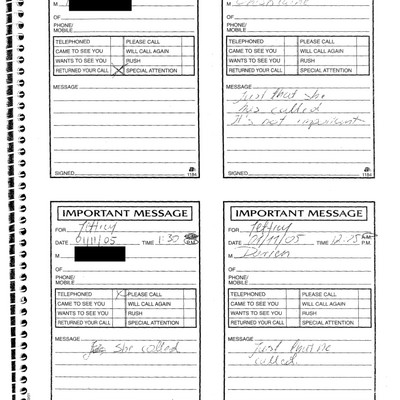 M
OF
PHONE/
MOBILE
TELEPHONED PLEASE CALL
CAME TO SEE YOU WILL CALL AGAIN
WANTS TO SEE YOU RUSH
RETURNED YOUR CALL X SPECIAL ATTENTION
MESSAGE
SIGNED
1184
M
OF
PHONE/
MOBILE
TELEPHONED PLEASE CALL
CAME TO SEE YOU WILL CALL AGAIN
WANTS TO SEE YOU RUSH
RETURNED YOUR CALL SPECIAL ATTENTION
MESSAGE
Just that she
has called
It's not important
SIGNED
1184
IMPORTANT MESSAGE
FOR Jeffrey
DATE 01/11/05 TIME 1:30
M
OF
PHONE/
MOBILE
TELEPHONED X PLEASE CALL
CAME TO SEE YOU WILL CALL AGAIN
WANTS TO SEE YOU RUSH
RETURNED YOUR CALL SPECIAL ATTENTION
MESSAGE
She called
IMPORTANT MESSAGE
FOR Jeffrey
DATE 01/11/05 TIME 12:25 P.M.
M
OF
PHONE/
MOBILE
TELEPHONED PLEASE CALL
CAME TO SEE YOU WILL CALL AGAIN
WANTS TO SEE YOU RUSH
RETURNED YOUR CALL SPECIAL ATTENTION
MESSAGE
Just
called